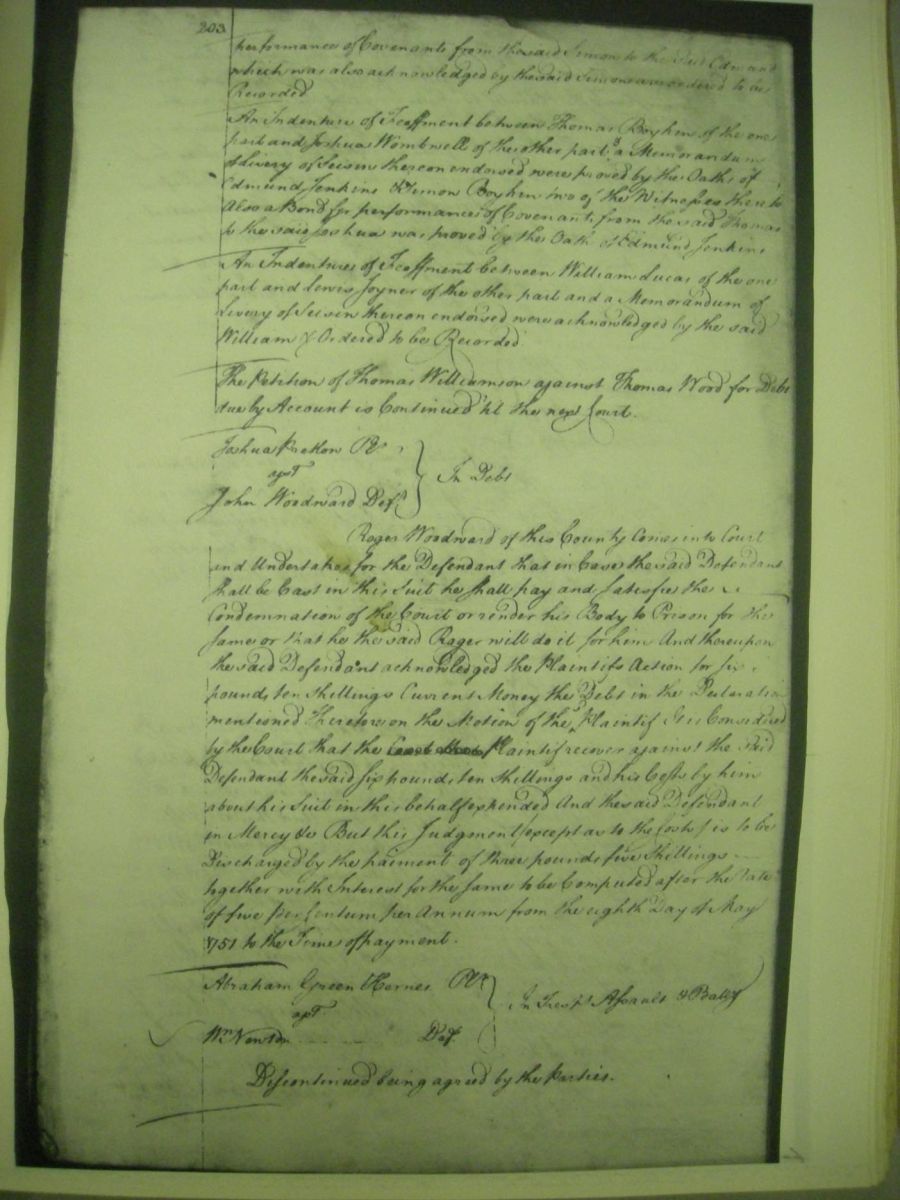 203
performance of Covenants from the said Simon to the said Edmund
which was also acknowledged by the said Simon & ordered to be
Recorded
An Indenture of Feoffment between Thomas Boykin of the one
part and Joshua Wombwell of the other part & a Memorandum
of Livery of Seisin thereon endorsed were proved by the Oaths of
Edmund Jenkins & Simon Boykin two of the Witnesses thereto
Also a Bond for performance of Covenants from the said Thomas
to the said Joshua was proved by the Oath of Edmund Jenkins
An Indenture of Feoffment between William Lucas of the one
part and Lewis Joyner of the other part and a Memorandum of
Livery of Seisin thereon endorsed were acknowledged by the said
William & Ordered to be Recorded
The Petition of Thomas Williamson against Thomas Wood for Debt
due by Account is Continued 'til the next Court.
Joshua Pretlow Plt
agst
John Woodward Deft
In Debt
Roger Woodward of this County Comes into Court
and Undertakes for the Defendant that in Case the said Defendant
shall be Cast in this Suit he shall pay and satisfie the
Condemnation of the Court or render his Body to Prison for the
same or that he the said Roger will do it for him And thereupon
the said Defendant acknowledged the Plaintifs Action for six
pounds ten shillings Current Money the Debt in the Declaration
mentioned Therefore on the Motion of the Plaintif It is Considered
by the Court that the Plaintif recover against the said
Defendant the said six pounds ten shillings and his Costs by him
about his Suit in this behalf expended And the said Defendant
in Mercy &c But this Judgment (except as to the Costs) is to be
Discharged by the paiment of three pounds five shillings
together with Interest for the same to be Computed after the Rate
of five per Centum per Annum from the eighth Day of May
1751 to the Time of payment.
Abraham Green Hernes Plt
agst
Wm Newton Deft
In Tresps Assault & Battry
Discontinued being agreed by the Parties.